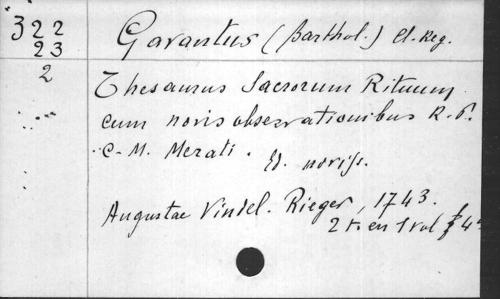 322 Gavantus (Barthol.) Cl. Reg.
23
2 Thesaurus Sacrorum Rituum
cum novis observationibus R. P.
C. M. Merati. Ed. noviss.
Augustae Vindel. Rieger, 1743.
2 t. en 1 vol 4°